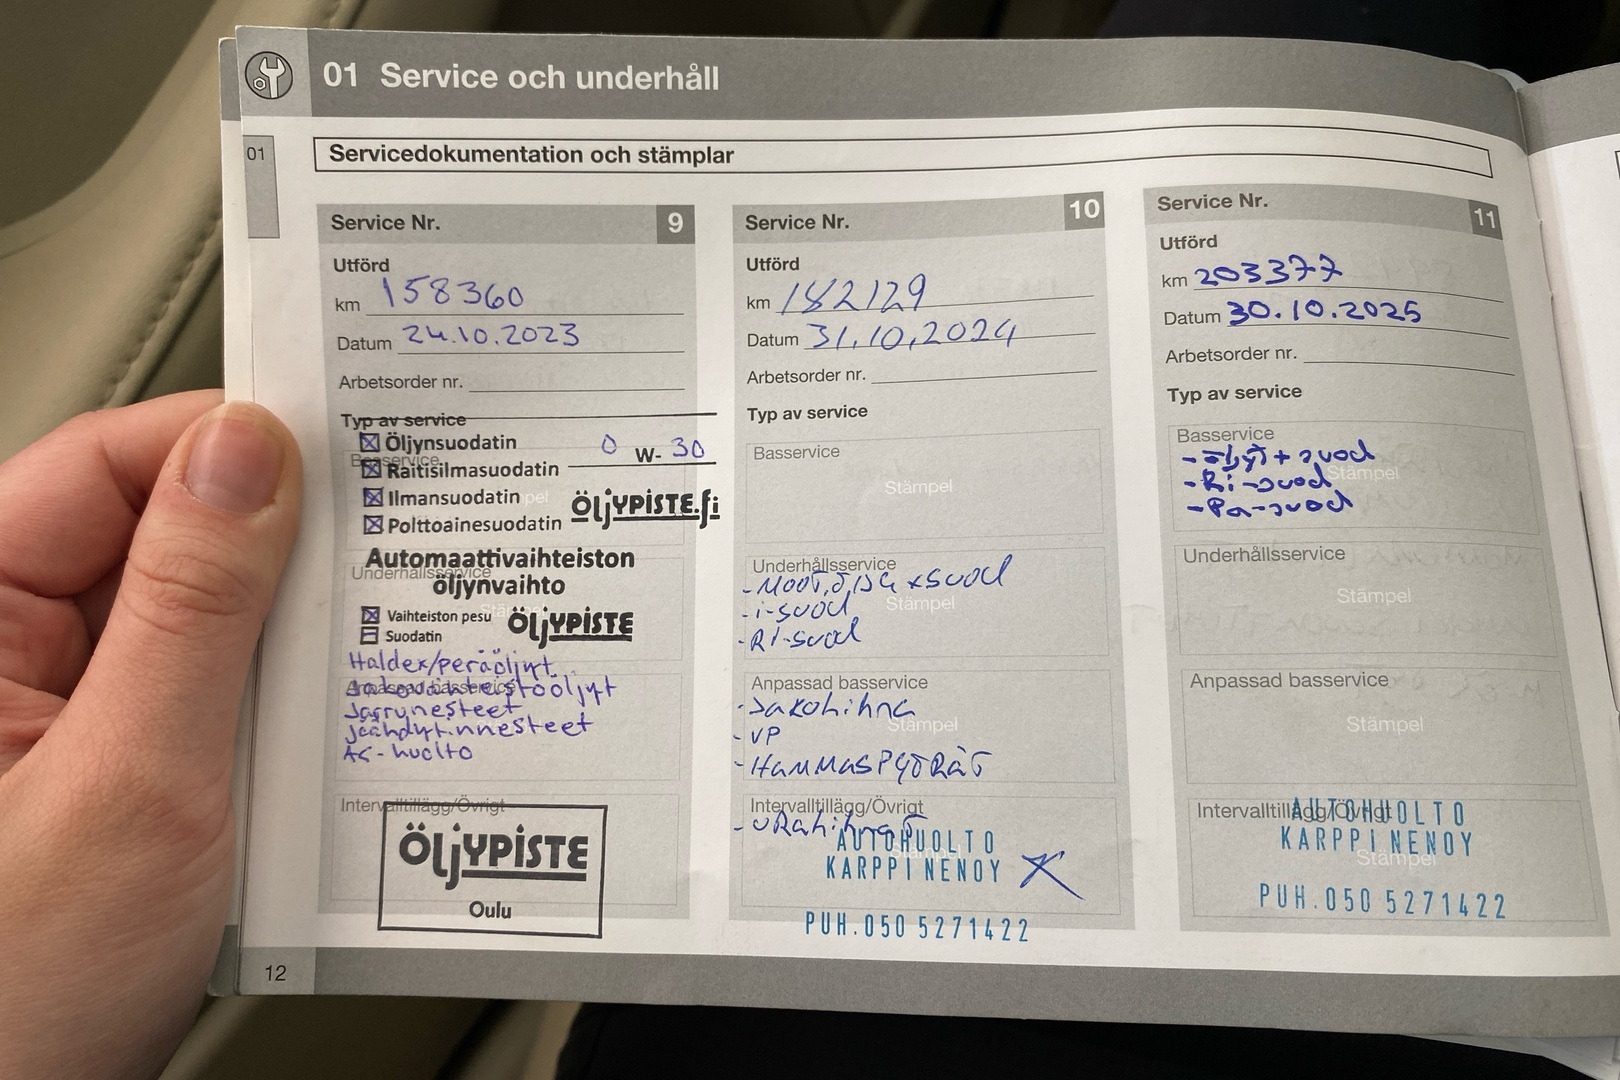 01 Service och underhåll
01
Servicedokumentation och stämplar
Service Nr. 9
Utförd
km 158360
Datum 24.10.2023
Arbetsorder nr.
Typ av service
Öljynsuodatin
0 W- 30
Basservice
Raitisilmasuodatin
Ilmansuodatin
Polttoainesuodatin
ÖljYPISTE.fi
Automaattivaihteiston
Underhållsservice
öljynvaihto
Vaihteiston pesu
ÖljYPISTE
Suodatin
Haldex/peräöljyt
Anpassad basservice
Jarrunesteet
Jäähdytinnesteet
AC-huolto
Intervalltillägg/Övrigt
ÖljYPISTE
Oulu
12
Service Nr. 10
Utförd
km 182129
Datum 31.10.2024
Arbetsorder nr.
Typ av service
Basservice
Stämpel
Underhållsservice
+suod
Stämpel
-i-suod
-Ri-suod
Anpassad basservice
-Jakohihna
Stämpel
-VP
-HammasPYÖRÄT
Intervalltillägg/Övrigt
AUTOHUOLTO
KARPPINENOY
PUH.050 5271422
Service Nr. 11
Utförd
km 203377
Datum 30.10.2025
Arbetsorder nr.
Typ av service
Basservice
-öljyt+suod
Stämpel
-Ri-suod
-Pa-suod
Underhållsservice
Stämpel
Anpassad basservice
Stämpel
Intervalltillägg/Övrigt
AUTOHUOLTO
KARPPINENOY
Stämpel
PUH.050 5271422